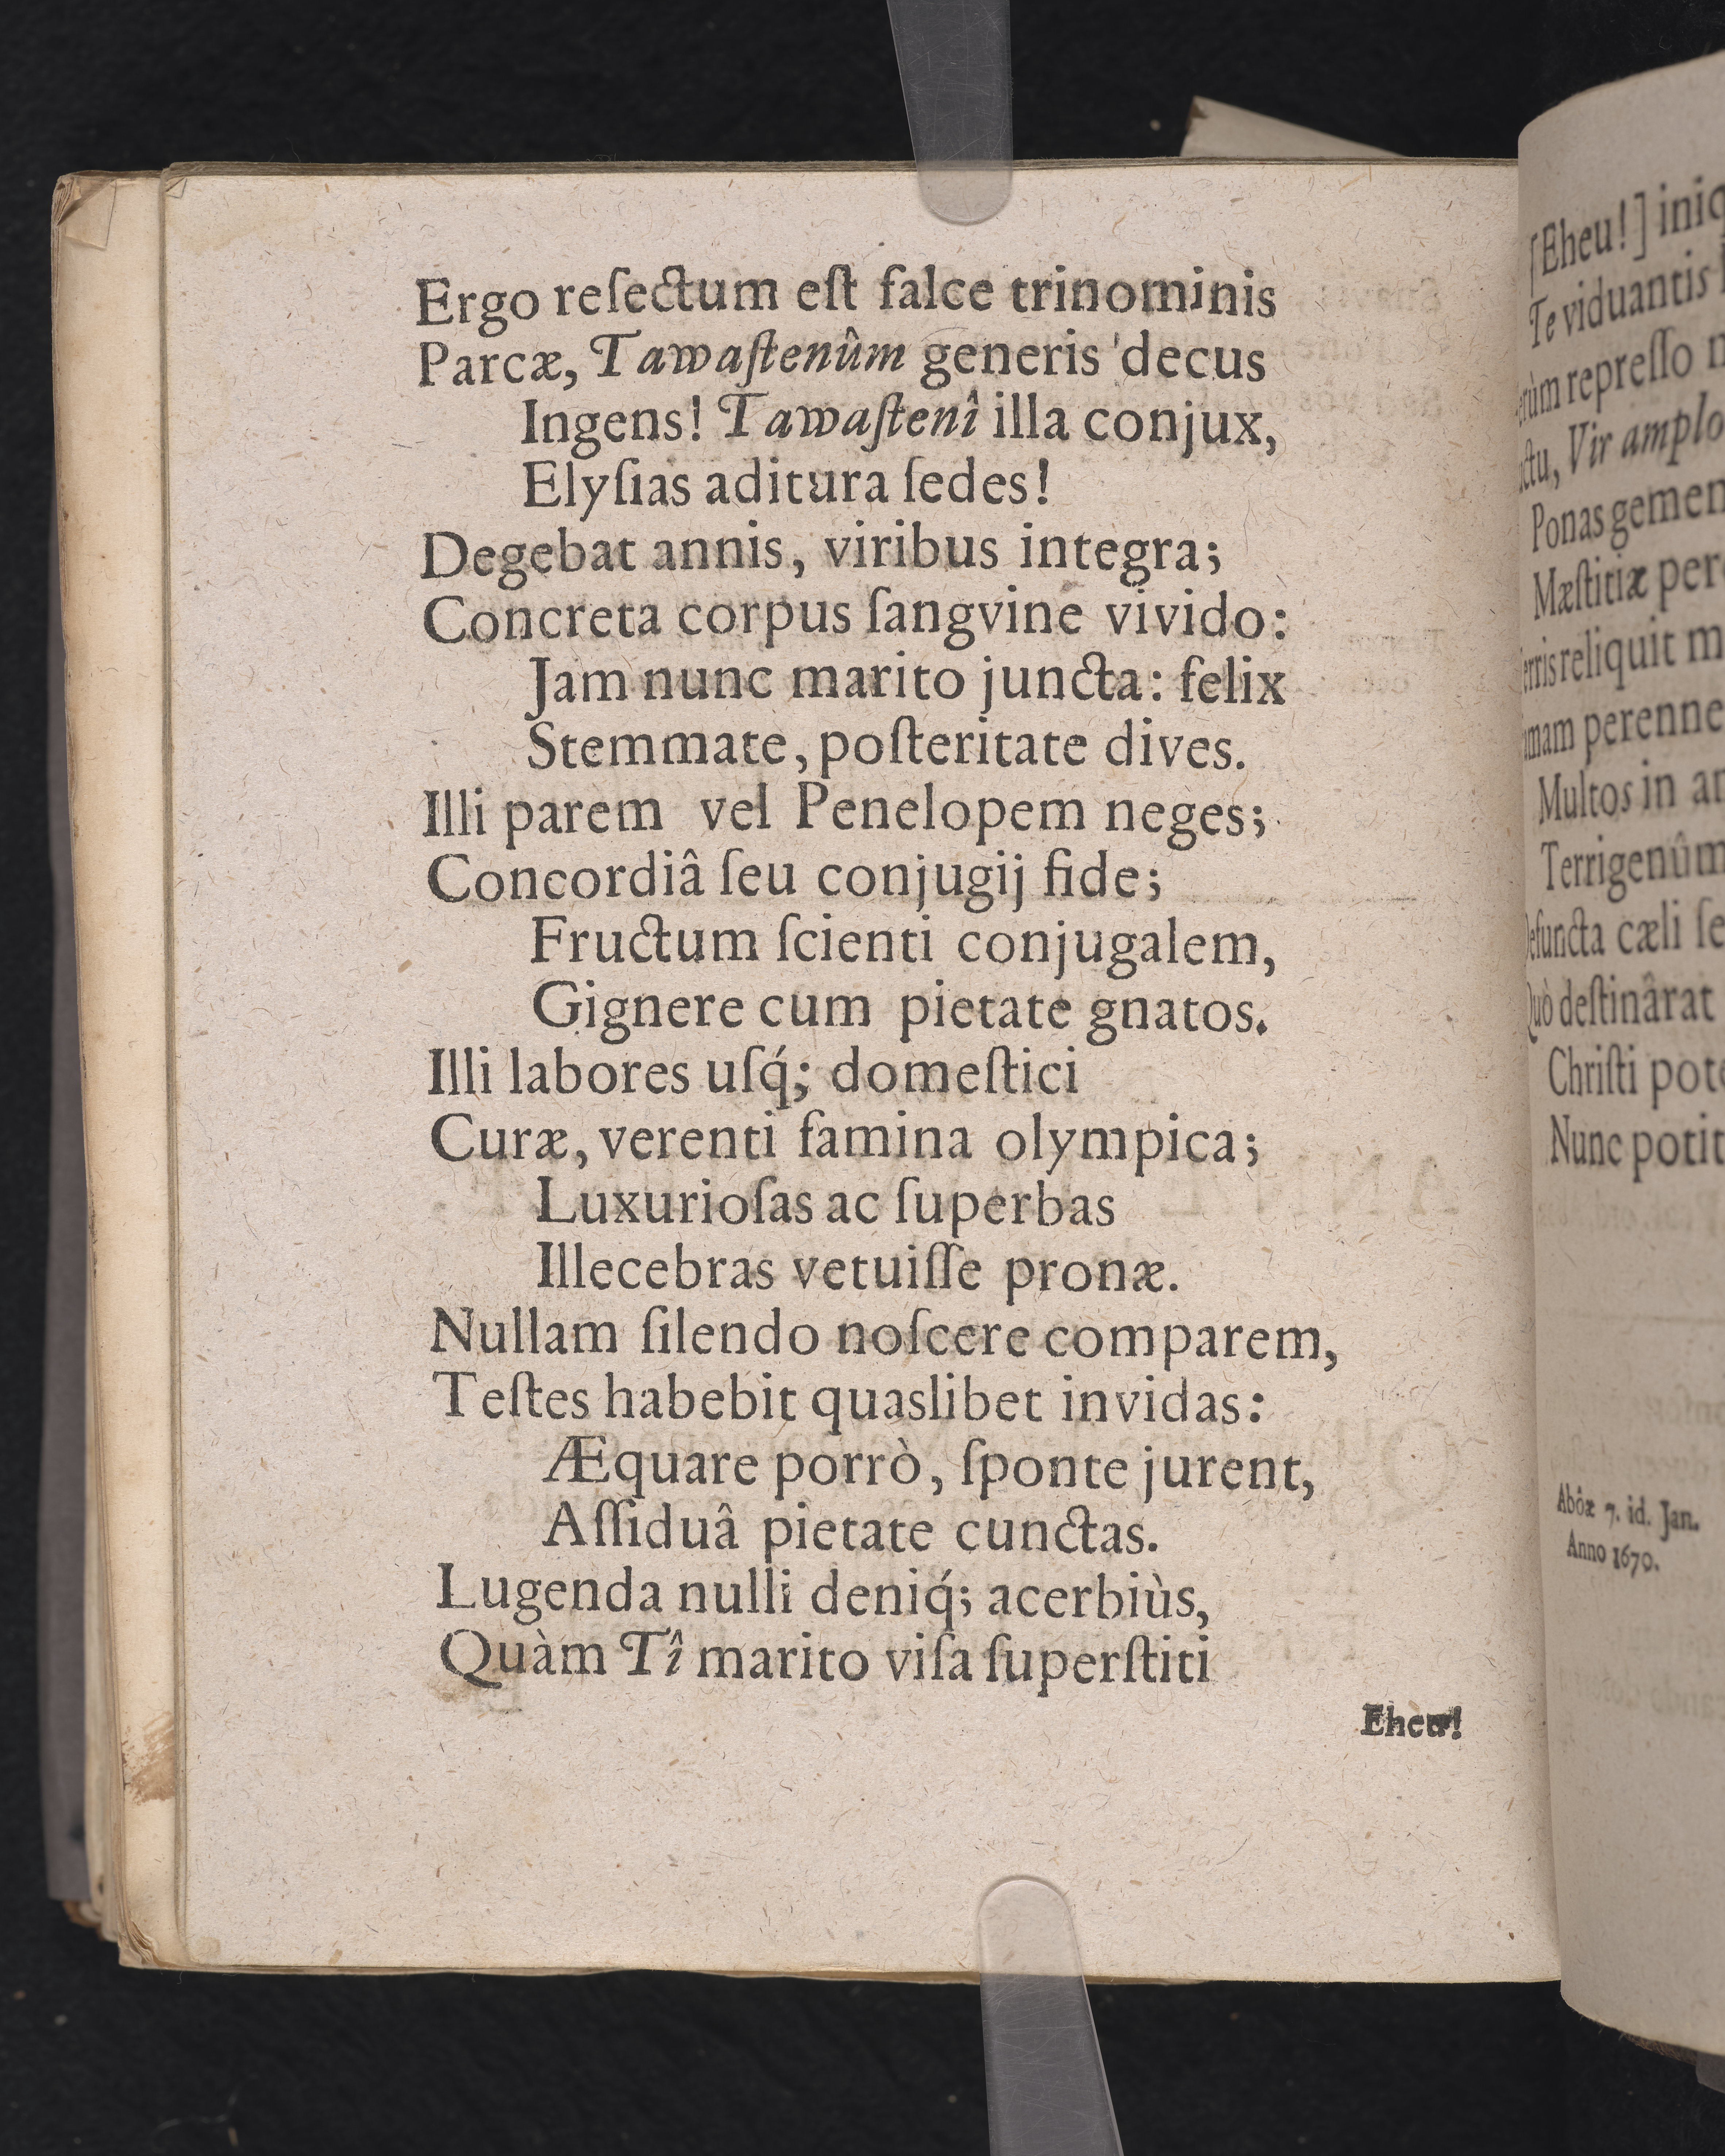 Ergo reſectum eſt falce trinominis
Parcæ, Tawaſtenûm generis decus
Ingens! Tawaſtenî illa conjux,
Elyſias aditura ſedes!
Degebat annis, viribus integra;
Concreta corpus ſangvine vivido:
Jam nunc marito juncta: felix
Stemmate, poſteritate dives.
Illi parem vel Penelopem neges;
Concordiâ ſeu conjugij fide;
Fructum ſcienti conjugalem,
Gignere cum pietate gnatos.
Illi labores uſq́; domeſtici
Curæ, verenti famina olympica;
Luxurioſas ac ſuperbas
Illecebras vetuiſſe pronæ.
Nullam ſilendo noſcere comparem,
Teſtes habebit quaslibet invidas:
Æquare porrò, ſponte jurent,
Aſſiduâ pietate cunctas.
Lugenda nulli deniq́; acerbiùs,
Quàm Tî marito viſa ſuperſtiti
Eheu!
[Eheu!]
Te viduantis
repreſſo
Vir amplo
Ponas
Mæſtitiæ
reliquit
perenne
Multos in
Terrigenûm
cæli
deſtinârat
Chriſti
Nunc
Abôæ 7. id. Jan.
Anno 1670.